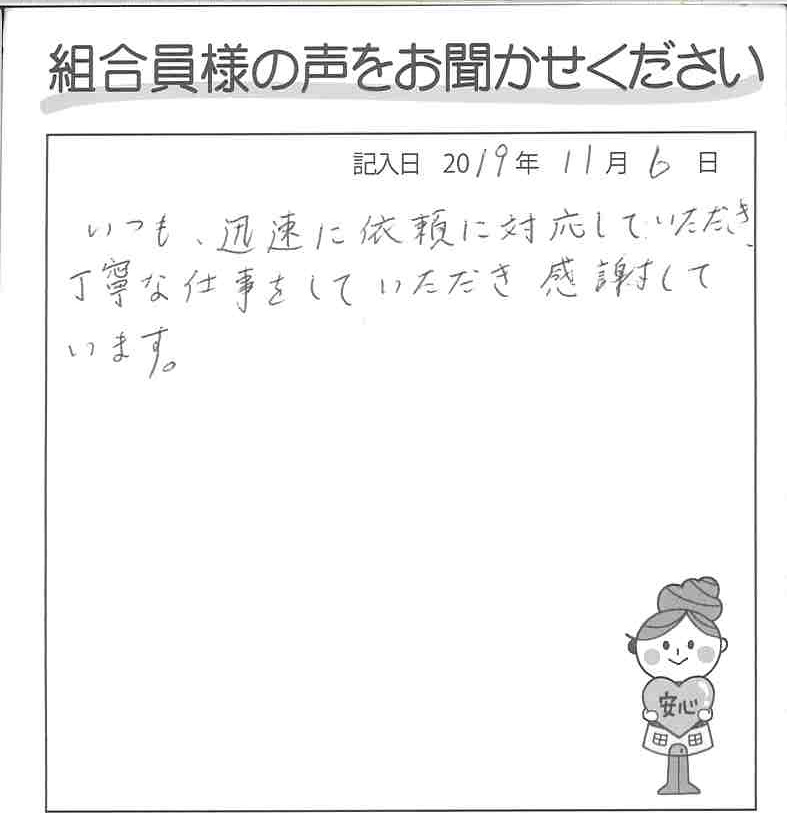 組合員様の声をお聞かせください
記入日 2019年 11月 6日
いつも、迅速に依頼に対応していただき、
丁寧な仕事をしていただき感謝して
います。
安心